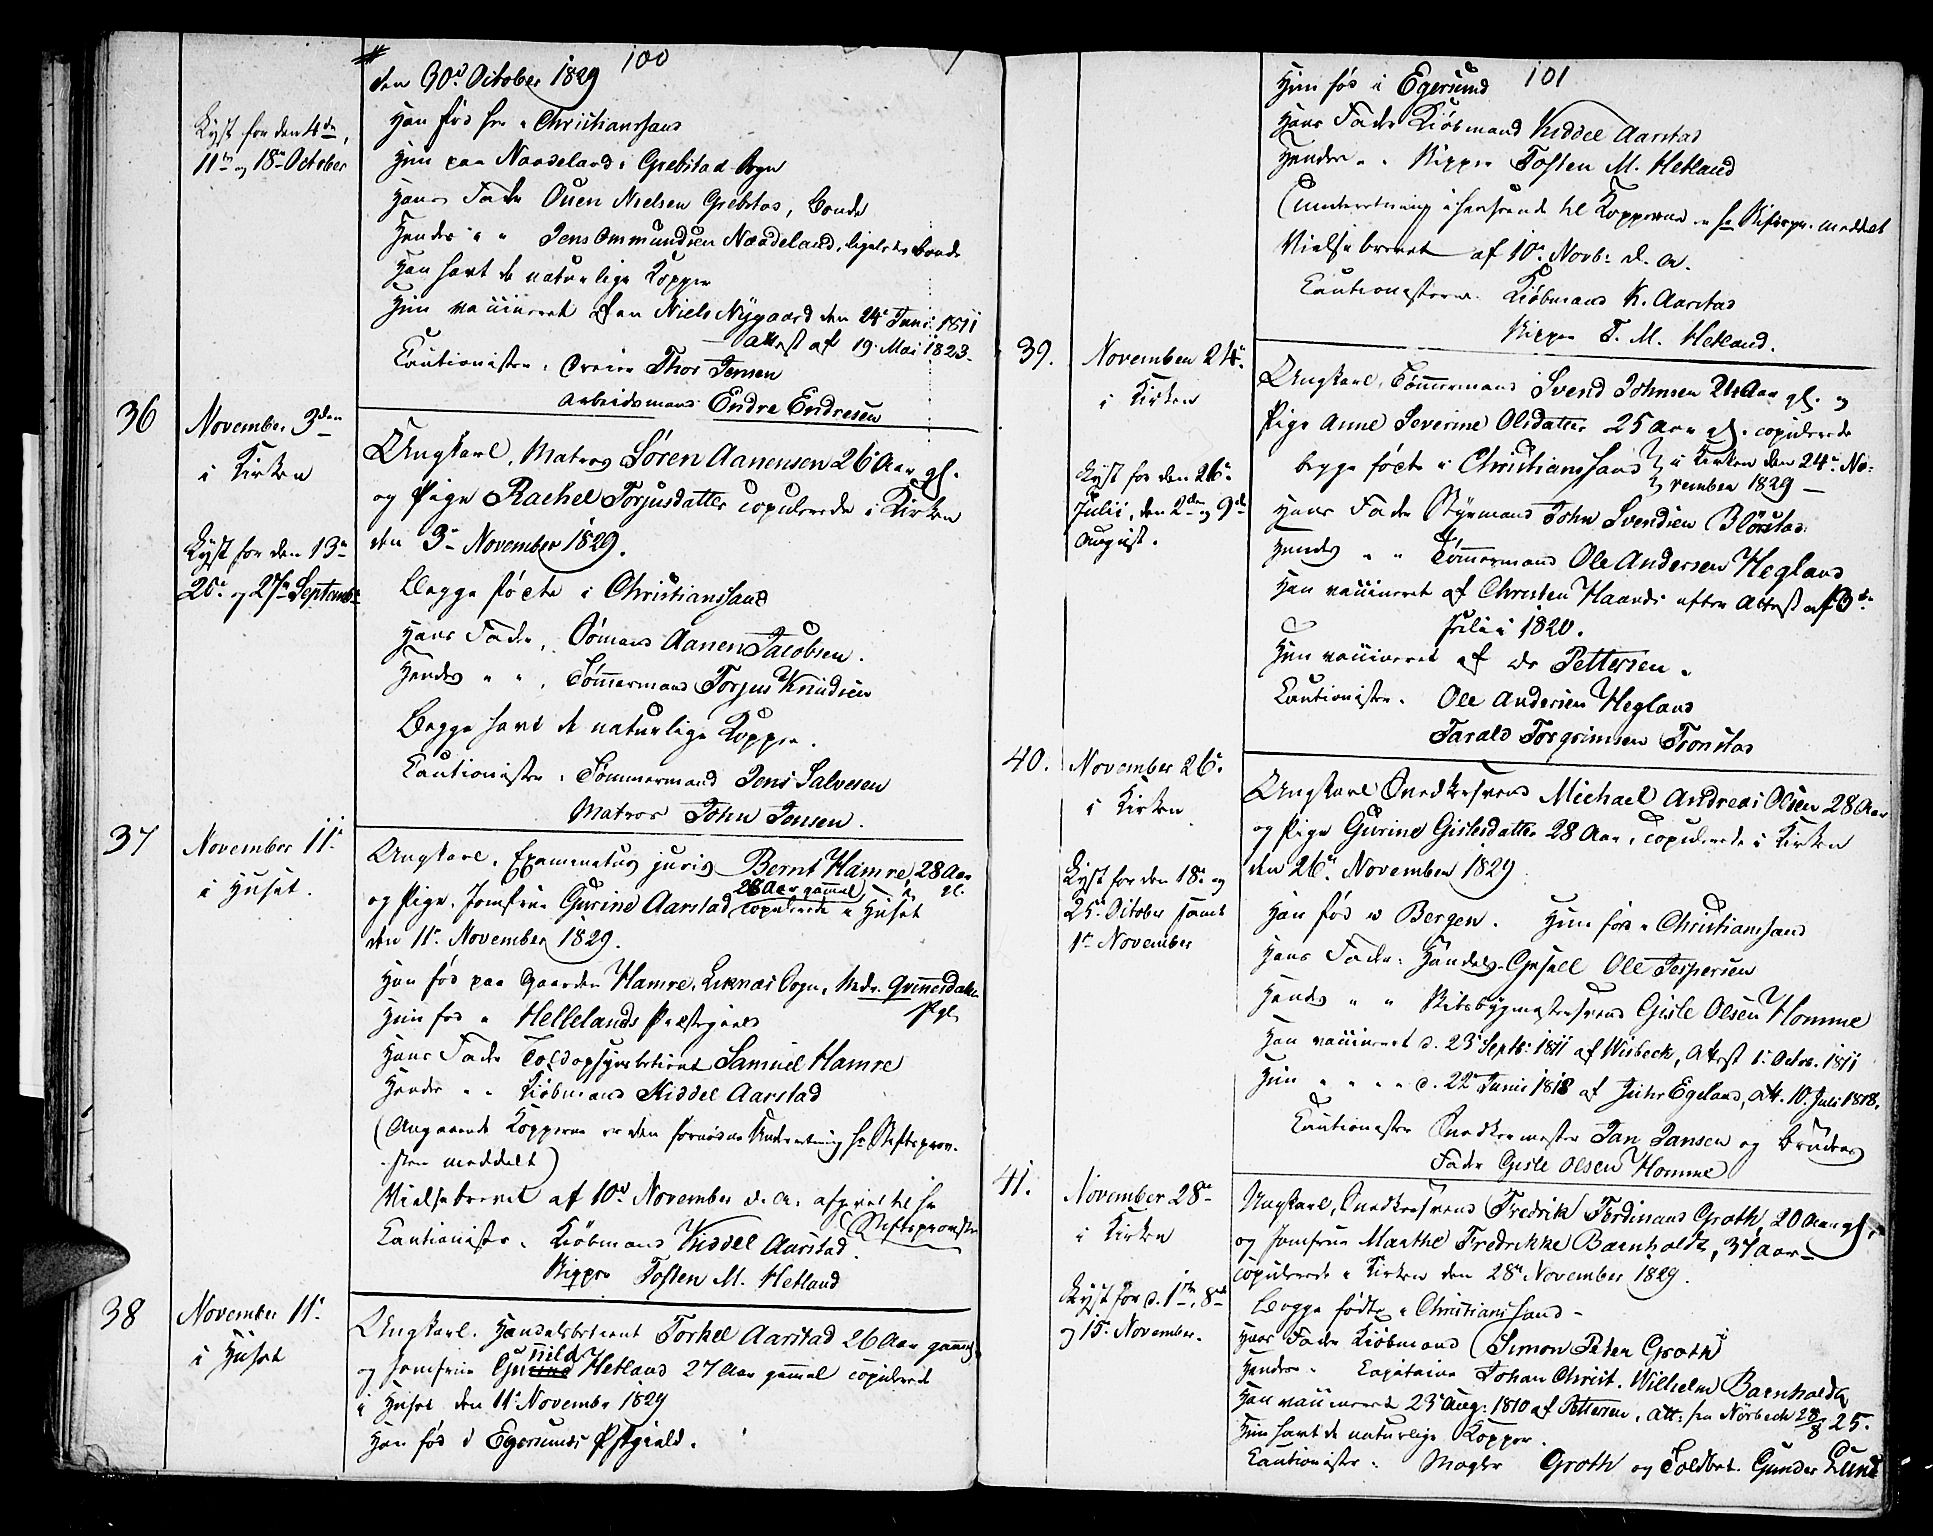 100
den 30d October 1829
Lyst for den 4de,
11te og 18de October
Han fød her i Christianssand
Hun paa Naadeland i Grebstad Sogn
Hans Fader Ouen Nielsen Grebstad, Bonde
Hendes " " Jens Ommundsen Naadeland, ligeledes Bonde
Han havt de naturlige Kopper
Hun vaccineret af Niels Nygaard den 24de Juni 1811
Attest af 19. Mai 1823.
Cautionister, Thor Jensen
Arbeidsmand Endre Endresen
36
November 3den
i Kirken
Lyst for den 13de
20de og 27de September
Ungkarl, Matros Søren Aanensen 26 Aar gl.
og Pige Rachel Torjusdatter copulerede i Kirken
den 3de November 1829.
Begge fødte i Christianssand
Hans Fader, Sømand Aanen Jacobsen.
Hendes " ", Tømmermand Torjus Knudsen
Begge havt de naturlige Kopper.
Cautionister, Tømmermand Jens Salvesen
Matros John Jensen.
37
November 11te
i Huset.
Ungkarl, Examinatus juris Bernt Hamre, 28 Aar gl.
og Pige, Jomfrue Gurine Aarstad 28 Aar gammel copulerede i Huset
den 11te November 1829.
Han fød paa Gaarden Hamre, Liknæs Sogn, Qvinesdalen
Pgl.
Hun fød i Hellelands Præstegield
Hans Fader Toldopsynsbetient Samuel Hamre
Hendes " " Kiøbmand Kiddel Aarstad
(Angaaende Kopperne er den fornødne Underretning Hr. Stiftsprov-
sten meddelt)
Vielsebrevet af 10de November d. A. afgivet til Hr
Stiftsprovsten
Cautionister, Kiøbmand Kiddel Aarstad.
Skipper Tosten M. Hetland
38
November 11te
i Huset
Ungkarl, Handelsbetient Torkel Aarstad 26 Aar gammel
og Jomfrue Gunild Hetland 27 Aar gammel copulerede
i Huset den 11te November 1829
Han fød i Egersunds Pstgield.
101
Hun fød i Egersund
Hans Fader Kiøbmand Kiddel Aarstad
Hendes " " Skipper Tosten M. Hetland
(Underretning i Henseende til Kopperne er Hr Stiftspr. meddelt
Vielsebrevet af 10de Novb: d. A.
Cautionisterne. Kiøbmand K. Aarstad
Skipper T. M. Hetland.
39.
November 24de
i Kirken
Lyst for den 26de
Julii, den 2den og 9de
August.
Ungkarl, Tømmermand Svend Johnsen 24 Aar gl. og
Pige Anne Severine Olsdatter 25 Aar gl. copulerede
begge fødte i Christianssand i Kirken den 24de No-
vember 1829 —
Hans Fader Styrmand John Svendsen Blørstad
Hendes " " Tømmermand Ole Andersen Hegland
Han vaccineret af Christen Haanes efter Attest af 13de
Julii 1820.
Hun vaccineret af Dr Pettersen.
Cautionister. Ole Andersen Hegland
Tarald Torgrimsen Tronstad
40.
November 26de
i Kirken
Lyst for den 18de og
25de October samt
1te November
Ungkarl Snedkersvend Michael Andreas Olsen 28 Aar
og Pige Gurine Gislesdatter 28 Aar, copulerede i Kirken
den 26de November 1829
Han fød i Bergen. Hun fød i Christianssand
Hans Fader, Handels-Gesell Ole Jespersen
Hendes " " Skibsbygmestersvend Gisle Olsen Homme
Han vaccineret d. 23 Septb: 1811 af Wisbech, Attest 1 Octob. 1811
Hun " " " d. 22de Junii 1818 af Juhr Egeland, Att. 10. Juli 1818.
Cautionister Snedkermester Jan Jansen og Brudens
Fader Gisle Olsen Homme
41.
November 28de
i Kirken
Lyst for d. 1te, 8de
og 15. November.
Ungkarl, Snedkersvend Fredrik Ferdinand Groth, 20 Aar gl.
og Jomfrue Marthe Fredrikke Barnholdt, 37 Aar
copulerede i Kirken den 28de November 1829.
Begge fødte i Christianssand —
Hans Fader Kiøbmand Simon Peter Groth
Hendes " Capitaine Johan Christ. Wilhelm Barnholdt
Han vaccineret 23 Aug: 1810 af Pettersen, Att: fra Nörbech 28/8 25.
Hun havt de naturlige Kopper.
Cautionister. Mægler Groth og Toldbet. Gunder Lund